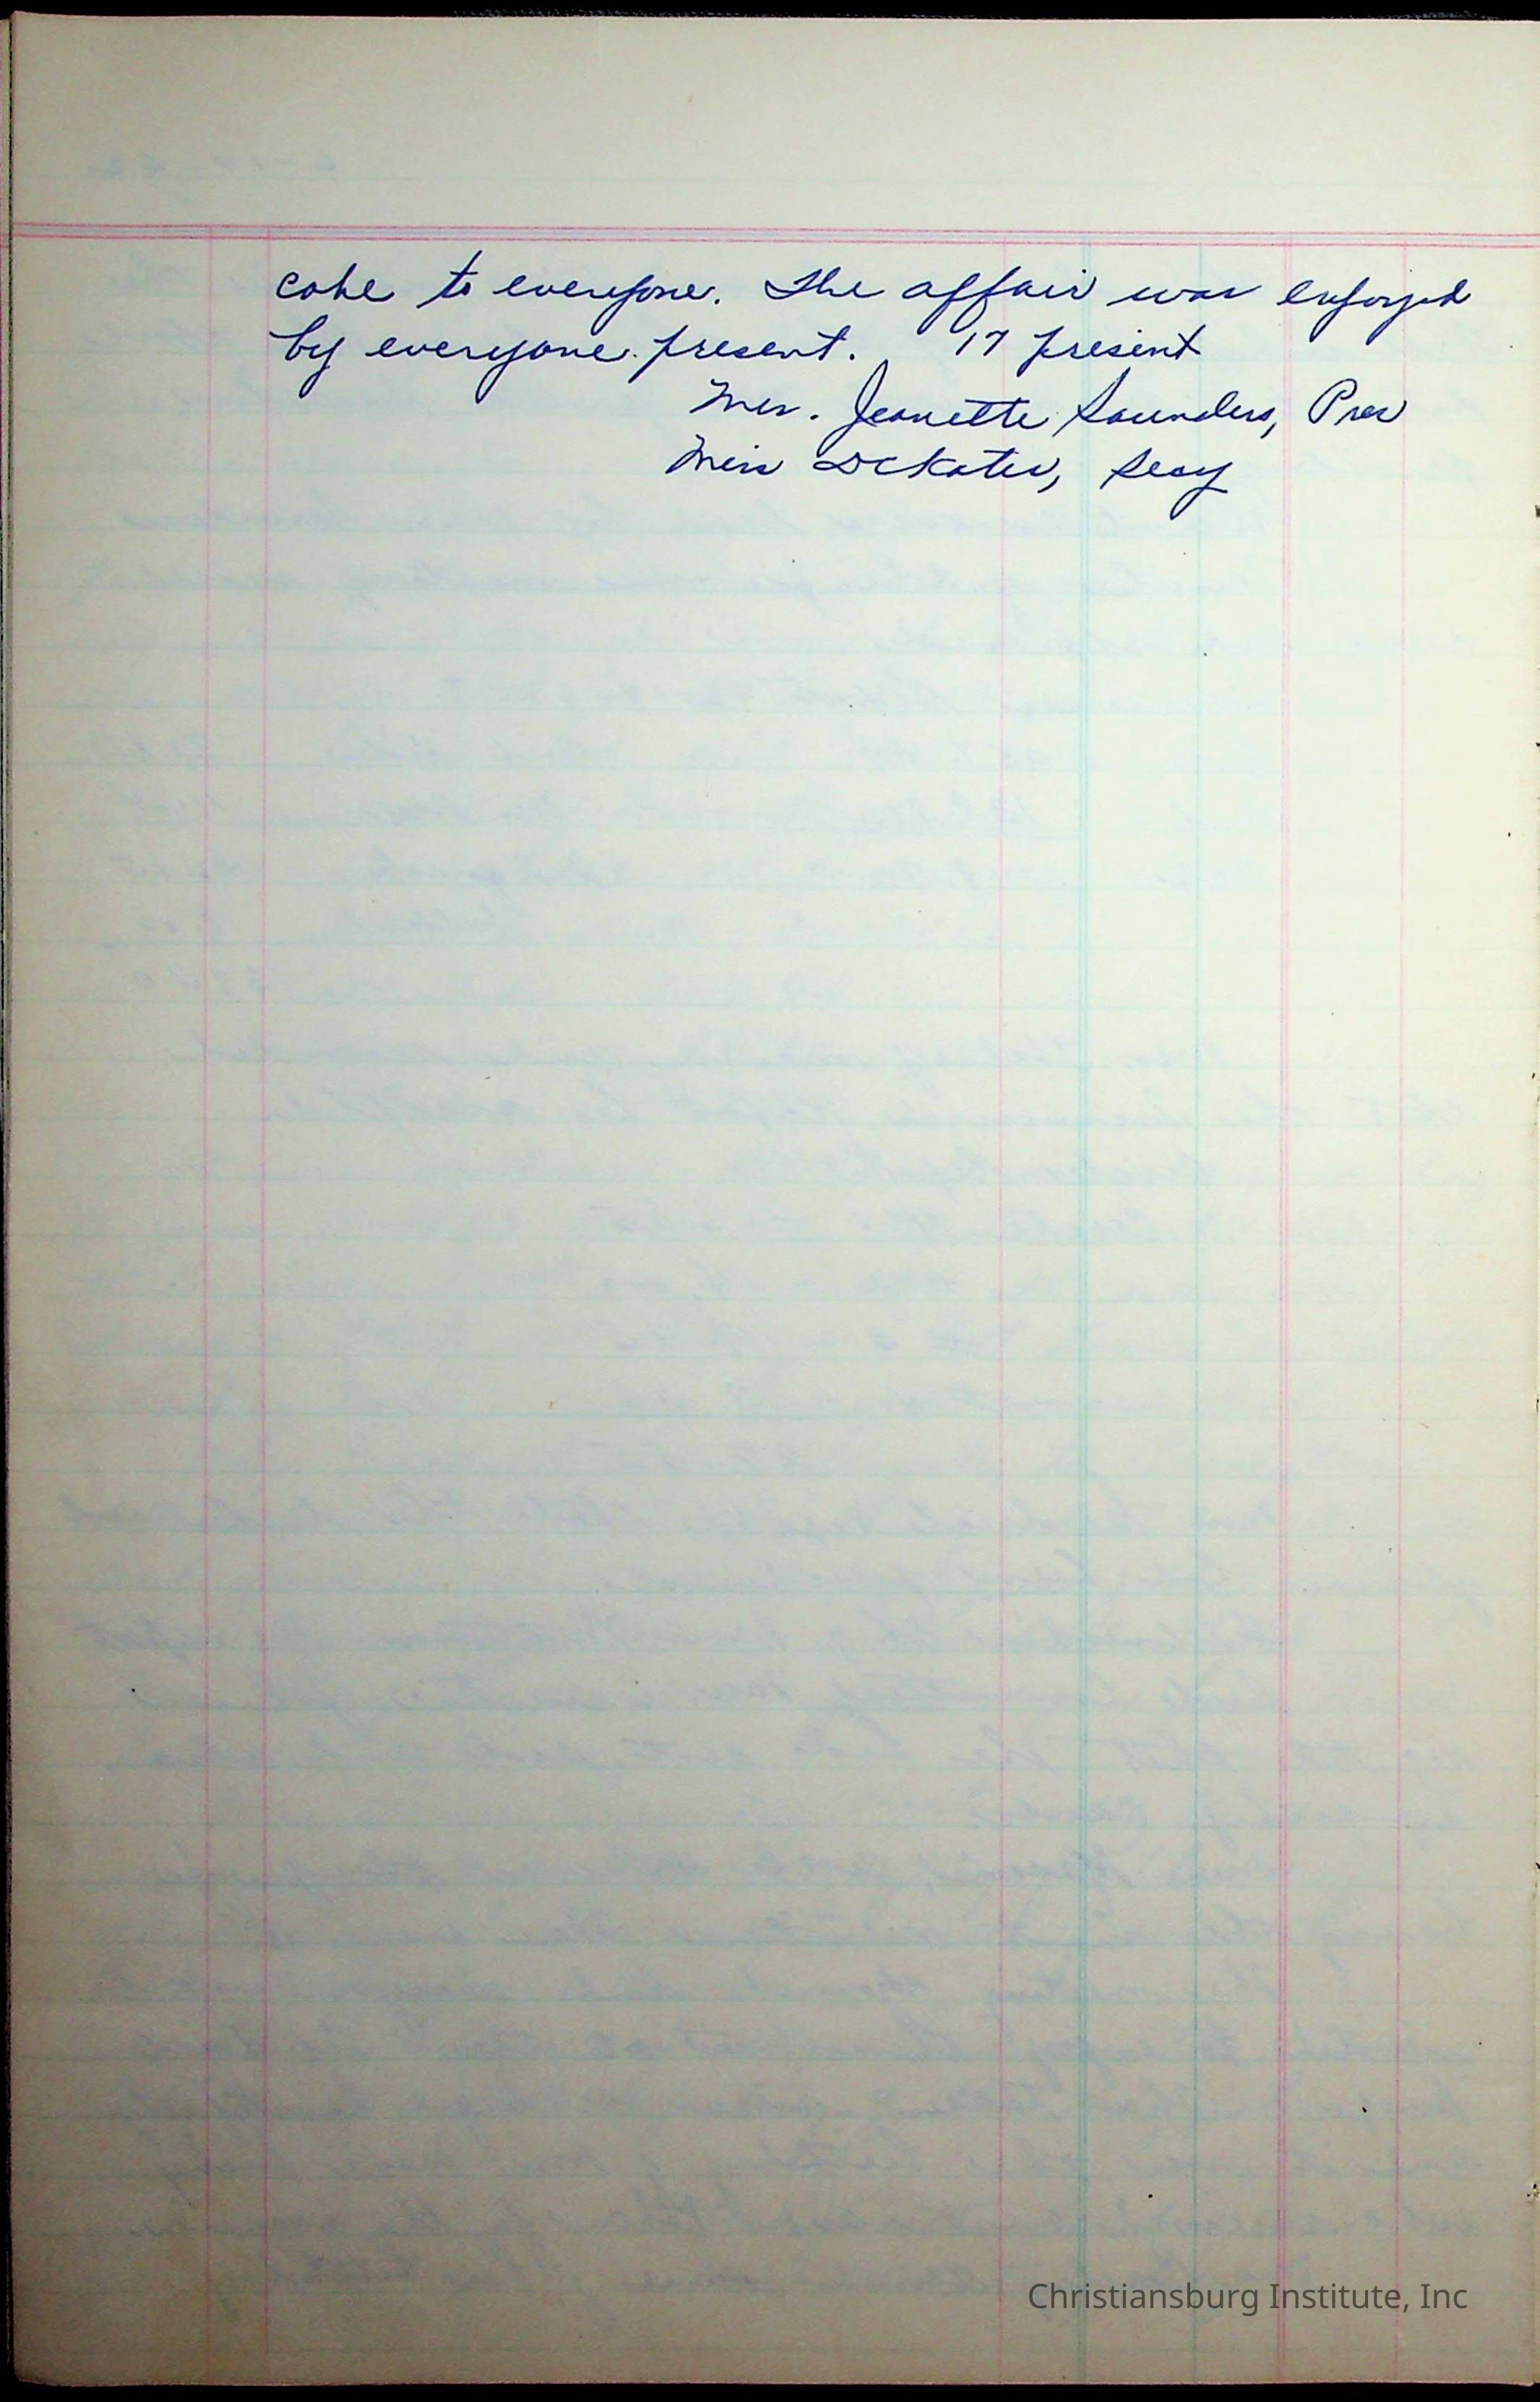 cake to everyone. The affair was enjoyed
by everyone present. 17 present
Mrs. Jeanette Saunders, Pres
Miss Dekater, Secy
Christiansburg Institute, Inc